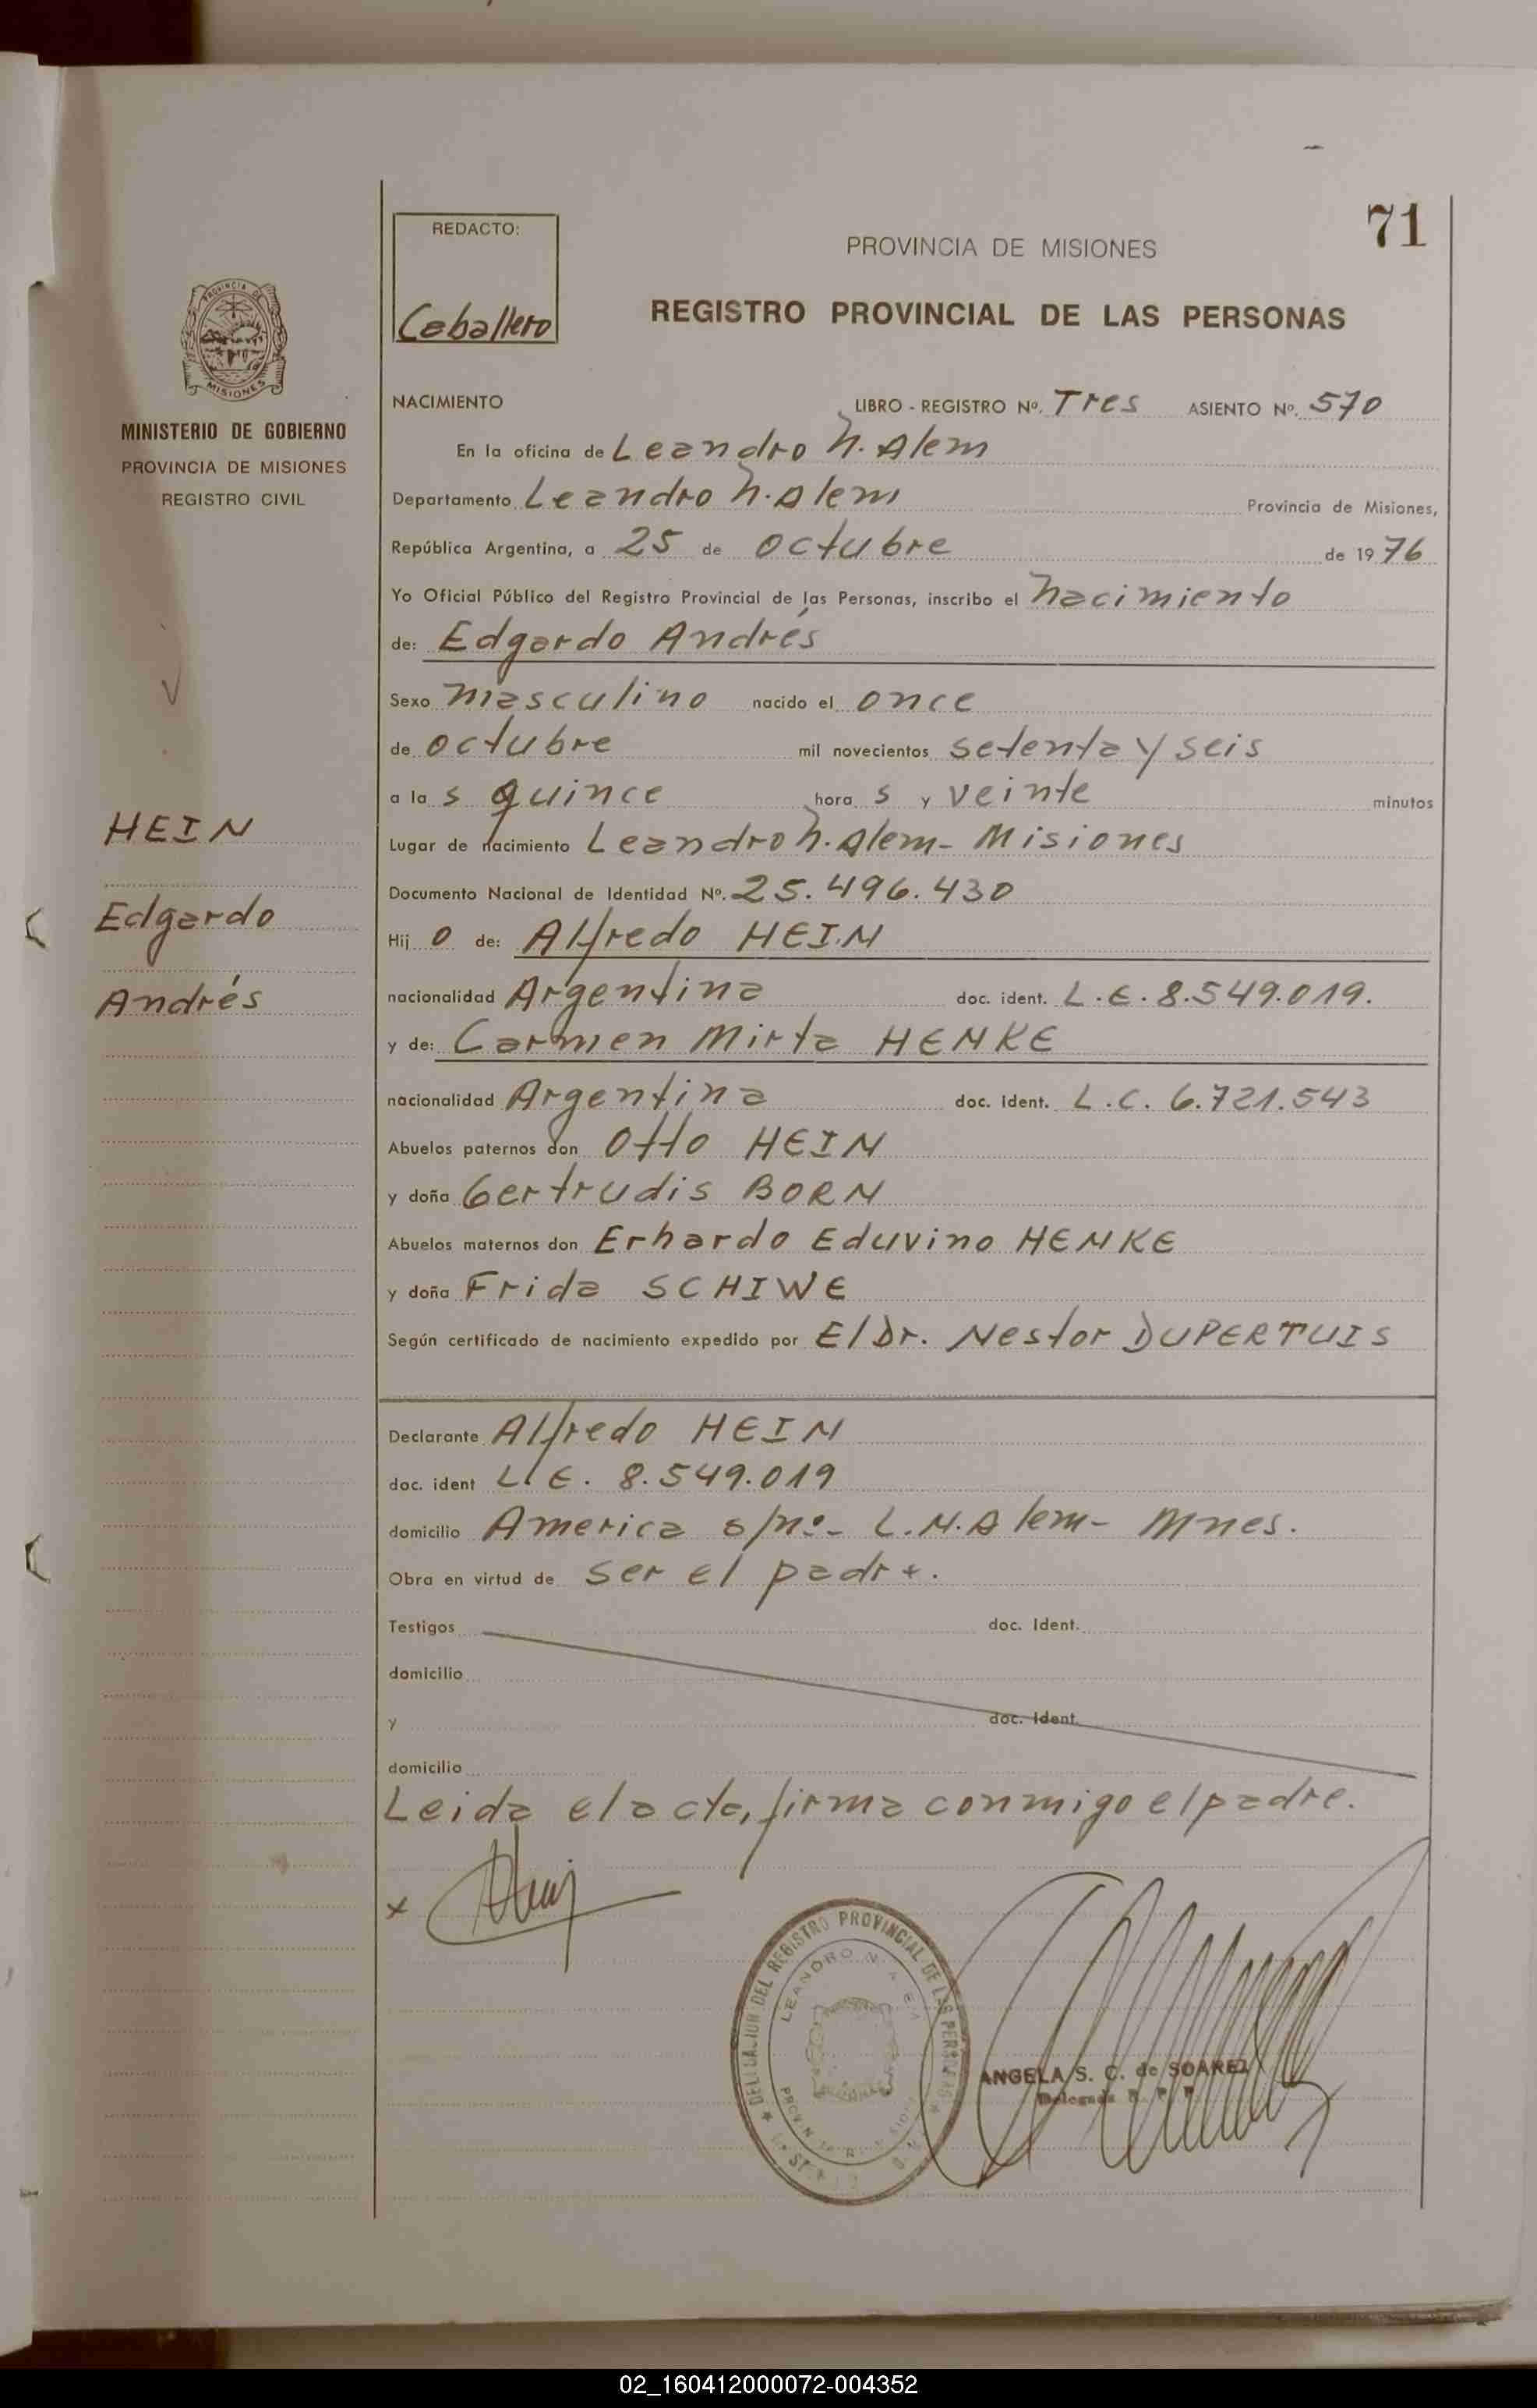 71
REDACTO:
Caballero
PROVINCIA DE MISIONES
REGISTRO PROVINCIAL DE LAS PERSONAS
MINISTERIO DE GOBIERNO
PROVINCIA DE MISIONES
REGISTRO CIVIL
NACIMIENTO LIBRO - REGISTRO Nº. Tres ASIENTO Nº. 570
En la oficina de Leandro N. Alem
Departamento Leandro N. Alem Provincia de Misiones,
República Argentina, a 25 de octubre de 1976
Yo Oficial Público del Registro Provincial de las Personas, inscribo el nacimiento
de: Edgardo Andrés
Sexo masculino nacido el once
de octubre mil novecientos setenta y seis
a las quince horas y veinte minutos
Lugar de nacimiento Leandro N. Alem - Misiones
Documento Nacional de Identidad Nº. 25.496.430
Hijo de: Alfredo HEIN
nacionalidad Argentina doc. ident. L.E. 8.549.019.
y de: Carmen Mirta HENKE
nacionalidad Argentina doc. ident. L.C. 6.721.543
Abuelos paternos don Otto HEIN
y doña Gertrudis BORN
Abuelos maternos don Erhardo Eduvino HENKE
y doña Frida SCHIWE
Según certificado de nacimiento expedido por El Dr. Nestor DUPERTUIS
HEIN
Edgardo
Andrés
Declarante Alfredo HEIN
doc. ident L.E. 8.549.019
domicilio America s/nº- L.N. Alem - Mnes.
Obra en virtud de ser el padre.
Testigos doc. Ident.
domicilio
y doc. Ident.
domicilio
Leida el acta, firma conmigo el padre.
x
DEL REGISTRO PROVINCIAL DE LAS PERSONAS
LEANDRO N.
ANGELA S. C. de SOAREZ
Delegada
02_160412000072-004352